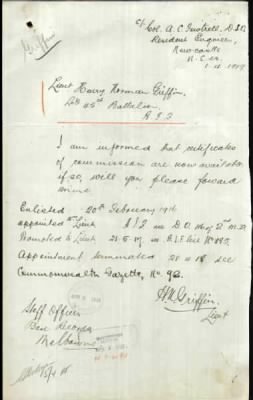 c/- Col. A. C. D.S.O.
Resident Engineer,
Newcastle
N.S.W.
1.4.1919
Griffin
Lieut Harry Norman Griffin,
Late 45th Battalion,
A.I.F.
I am informed that certificates
of commission are now available
if so, will you please forward
mine.
Enlisted 20th February 1916
appointed 2nd Lieut A.I.F. D.O. 2nd M.D.
Promoted to Lieut 21.5.17
Appointment terminated see
Commonwealth Gazette, No 92.
H N Griffin.
Lieut
Staff Officer
Base Records
Melbourne